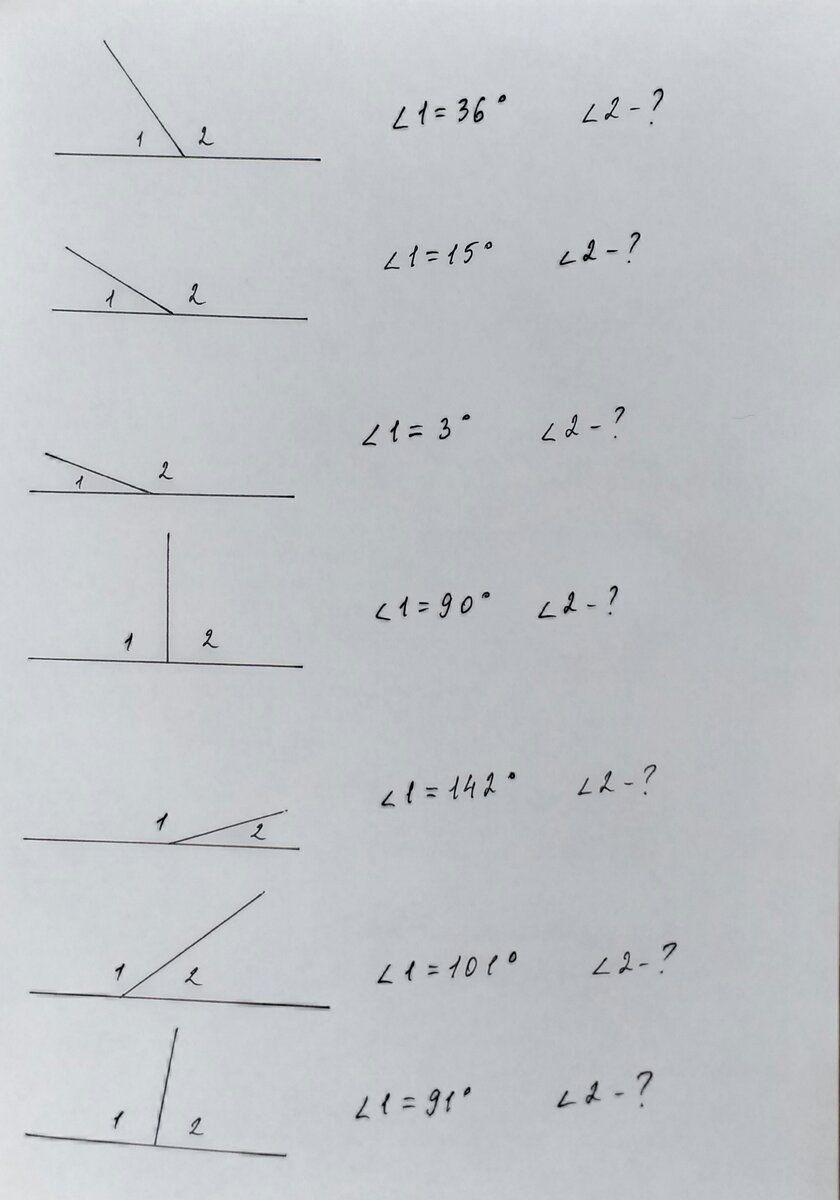 1 2 ∠1=36° ∠2-?
1 2 ∠1=15° ∠2-?
1 2 ∠1=3° ∠2-?
1 2 ∠1=90° ∠2-?
1 2 ∠1=142° ∠2-?
1 2 ∠1=101° ∠2-?
1 2 ∠1=91° ∠2-?